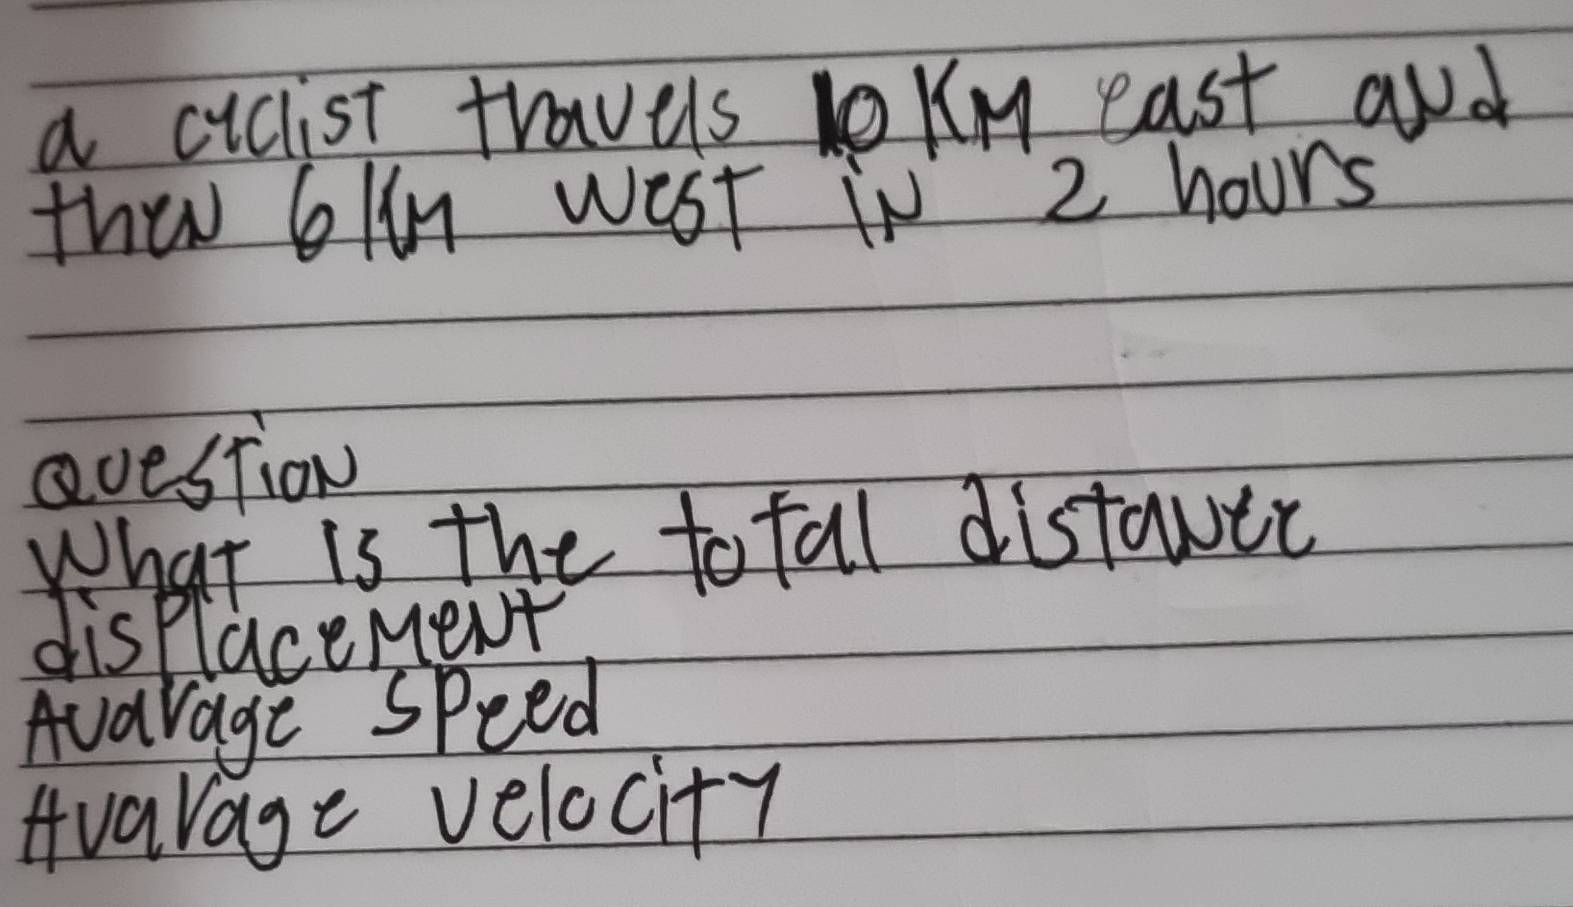 a cyclist travels 10 KM east and
then 6 KM west in 2 hours
Question
What is the total distance
displacement
Avarage speed
Avarage velocity